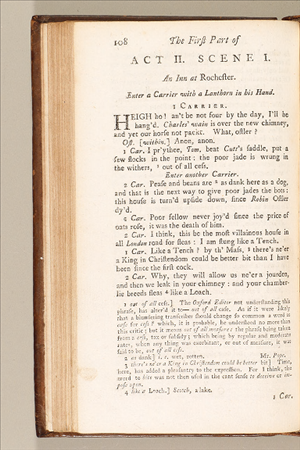 108 The First Part of
ACT II. SCENE I.
An Inn at Rochester.
Enter a Carrier with a Lanthorn in his Hand.
1 CARRIER.
HEIGH ho! an't be not four by the day, I'll be
hang'd. Charles' wain is over the new chimney,
and yet our horse not packt. What, ostler?
Ost. [within.] Anon, anon.
1 Car. I pr'ythee, Tom, beat Cutt's saddle, put a
few flocks in the point: the poor jade is wrung in
the withers, 1 out of all cess.
Enter another Carrier.
2 Car. Pease and beans are 2 as dank here as a dog,
and that is the next way to give poor jades the bots:
this house is turn'd upside down, since Robin Ostler
dy'd.
1 Car. Poor fellow never joy'd since the price of
oats rose, it was the death of him.
2 Car. I think, this be the most villainous house in
all London road for fleas: I am stung like a Tench.
1 Car. Like a Tench? by th' Mass, 3 there's ne'er
a King in Christendom could be better bit than I have
been since the first cock.
2 Car. Why, they will allow us ne'er a jourden,
and then we leak in your chimney: and your chamber-
lie breeds fleas 4 like a Loach.
1 out of all cess.] The Oxford Editor not understanding this
phrase, has alter'd it to— out of all case. As if it were likely
that a blundering transcriber should change so common a word as
case for cess? which, it is probable, he understood no more than
this critic; but it means out of all measure: the phrase being taken
from a cess, tax or subsidy; which being by regular and moderate
rates, when any thing was exorbitant, or out of measure, it was
said to be, out of all cess.
2 as dank] i. e. wet, rotten. Mr. Pope.
3 there's ne'er a King in Christendom could be better bit]
here, has added a pleasantry to the expression. For I think, the
word to bite was not then used in the cant sense to deceive or im-
pose upon.
4 like a Loach.] Scotch, a lake.
1 Car.